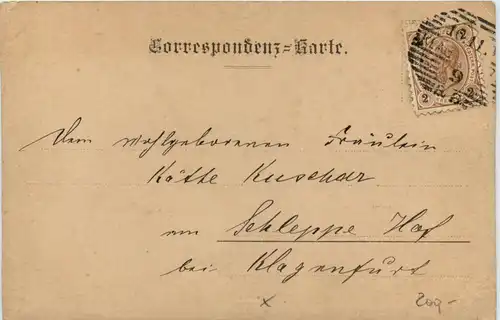 Correspondenz=Karte.
2 2
Dem wohlgeborenen Fräulein
Käthe Kuschar
am Schleppe Hof
bei Klagenfurt
x 200-